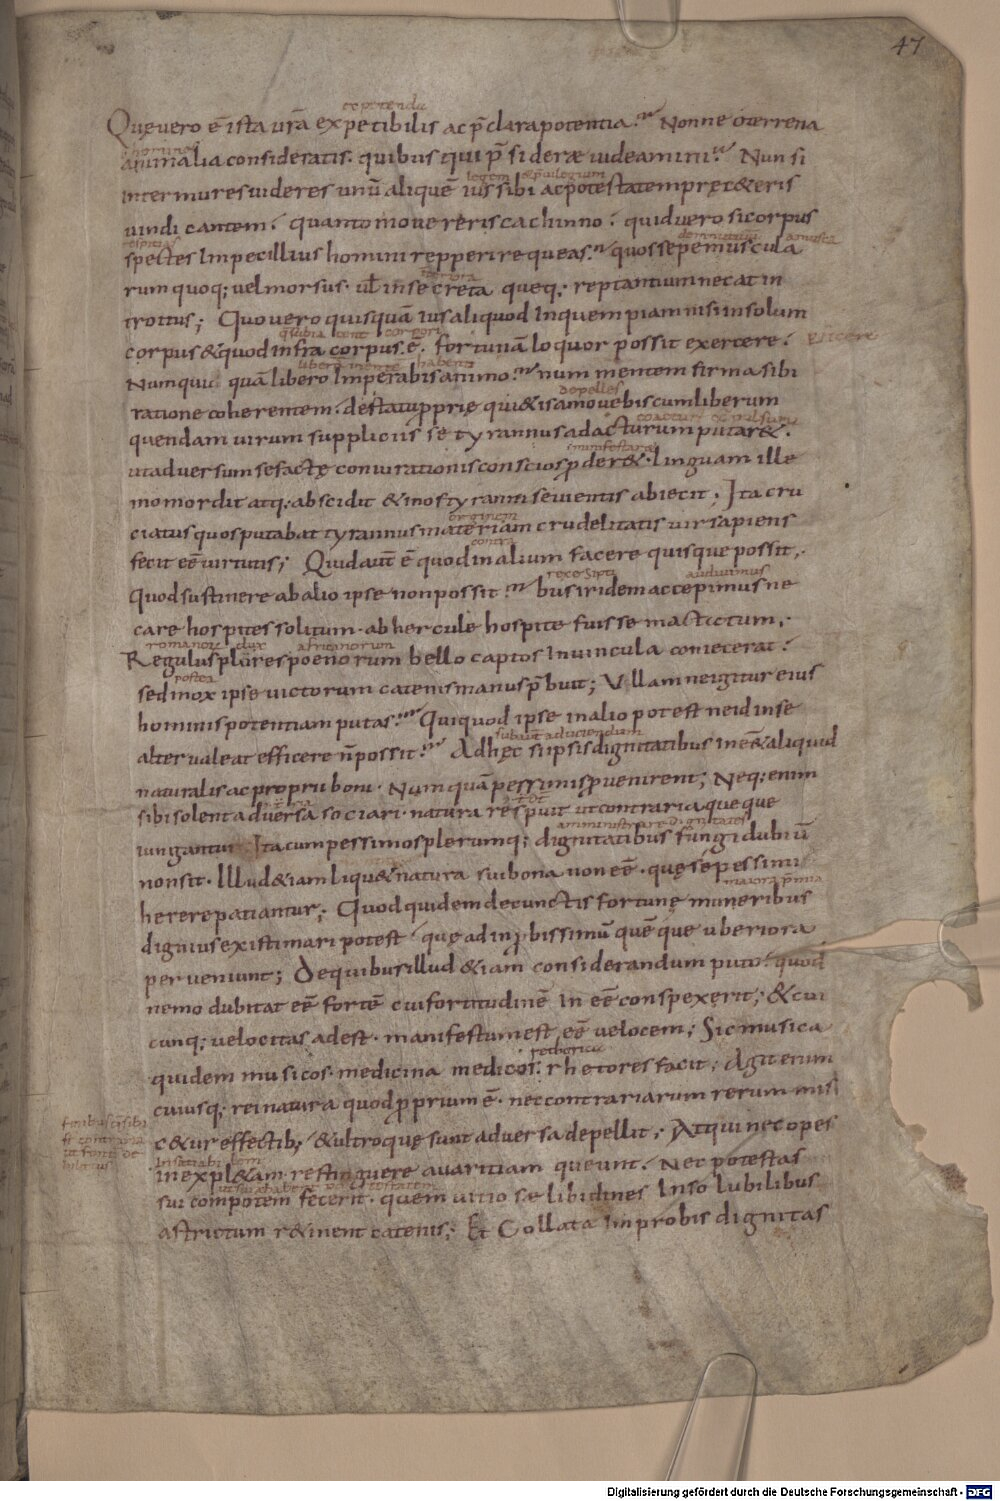 47
expetenda
Quę vero ē ista urā expetibilis ac p̄clara potentia? Nonne o terrena
animalia consideratis. quibus qui p̄sideræ videamini? Nun si
legem & p̄uilegium
inter mures videres unū aliquē ius sibi ac potestatem pręt& eris
vindicantem? quanto movereris cachinno? quid vero si corpus
respicias
spectes Impecillius homini repperire queas? quos sepe muscula
rum quoq; vel morsus. vł in secreta queq; reptantium necat in
troitus; Quo vero quisquā ius aliquod In quempiam nisi in solum
corpus & quod infra corpus ē. fortunā loquor possit exercere?
Numquid quā libero Imperabis animo? num mentem firma sibi
depelles
ratione coherentem. de statu p̱prię qui&is amovebis cum liberum
quendam virum suppliciis se tyrannus adacturum putar&.
manifestare
ut adversum se factę coniurationis conscios p̱der&. linguam ille
momordit atq; abscidit & in os tyranni sevientis abiecit; Ita cru
originem
ciatus quos putabat tyrannus materiam crudelitatis vir sapiens
contra
fecit eē virtutis; Quid aut̄ ē quod in alium facere quisque possit.
audivimus
quod sustinere ab alio ipse non possit? busiridem accepimus ne
care hospites solitum. ab hercule hospite fuisse mactatum.
romanorū dux africanorum
Regulus plures poenorum bello captos In vincula coniecerat?
postea
sed mox ipse victorum catenis manus p̄buit; Ullam ne igitur eius
hominis potentiam putas? Qui quod ipse in alio potest ne id in se
alter valeat efficere n̄ possit? Ad hęc si ipsis dignitatibus ine&aliquid
naturalis ac proprii boni. Numquā pessimis p̱venirent; Neq; enim
sibi solent adversa sociari. natura respuit ut contraria queque
amministrare dignitates
iungantur Ita cum pessimos plerumq; dignitatibus fungi dubiū
non sit. Illud &iam liqu& natura sui bona non eē. quę se pessimis
herere patiantur; Quod quidem de cunctis fortunę muneribus
dignius existimari potest quę ad inp̱bissimū quēque uberiora
perveniunt; De quibus illud &iam considerandum puto. quod
nemo dubitat eē fortē cui fortitudinē in eē conspexerit; & cui
cunq; velocitas adest. manifestum est eē velocem; Sic musica
rethorica
quidem musicos. medicina medicos. rhetores facit; Agit enim
cuiusq; rei natura quod p̱prium ē. nec contrariarum rerum mis
c&ur effectib; & ultro quę sunt adversa depellit; Atqui nec opes
insatiabilem
inexpl&am restinguere avaritiam queunt. Nec potestas
sui compotem fecerit. quem vitio se libidines Insolubilibus
astrictum r&inent catenis; Et Collata Improbis dignitas
Digitalisierung gefördert durch die Deutsche Forschungsgemeinschaft - DFG